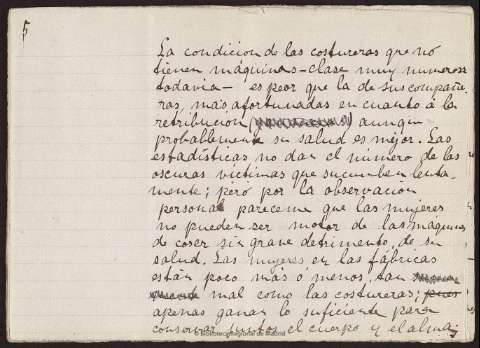 5
La condicion de las costureras que no
tienen máquinas - clase muy numerosa
todavia - es peor que la de sus compañe-
ras, mas afortunadas en cuanto á la
retribucion ( ) aunque
probablemente su salud es mejor. Las
estadísticas no dan el numero de las
oscuras víctimas que sucumben lenta-
mente; pero por la observacion
personal pareceme que las mujeres
no pueden ser motor de las máquinas
de coser sin grave detrimento de su
salud. Las mujeres en las fábricas
están poco más ó menos, tan
mal como las costureras; pues
apenas ganan lo suficiente para
conservar juntos el cuerpo y el alma;
Biblioteca Regional de Madrid